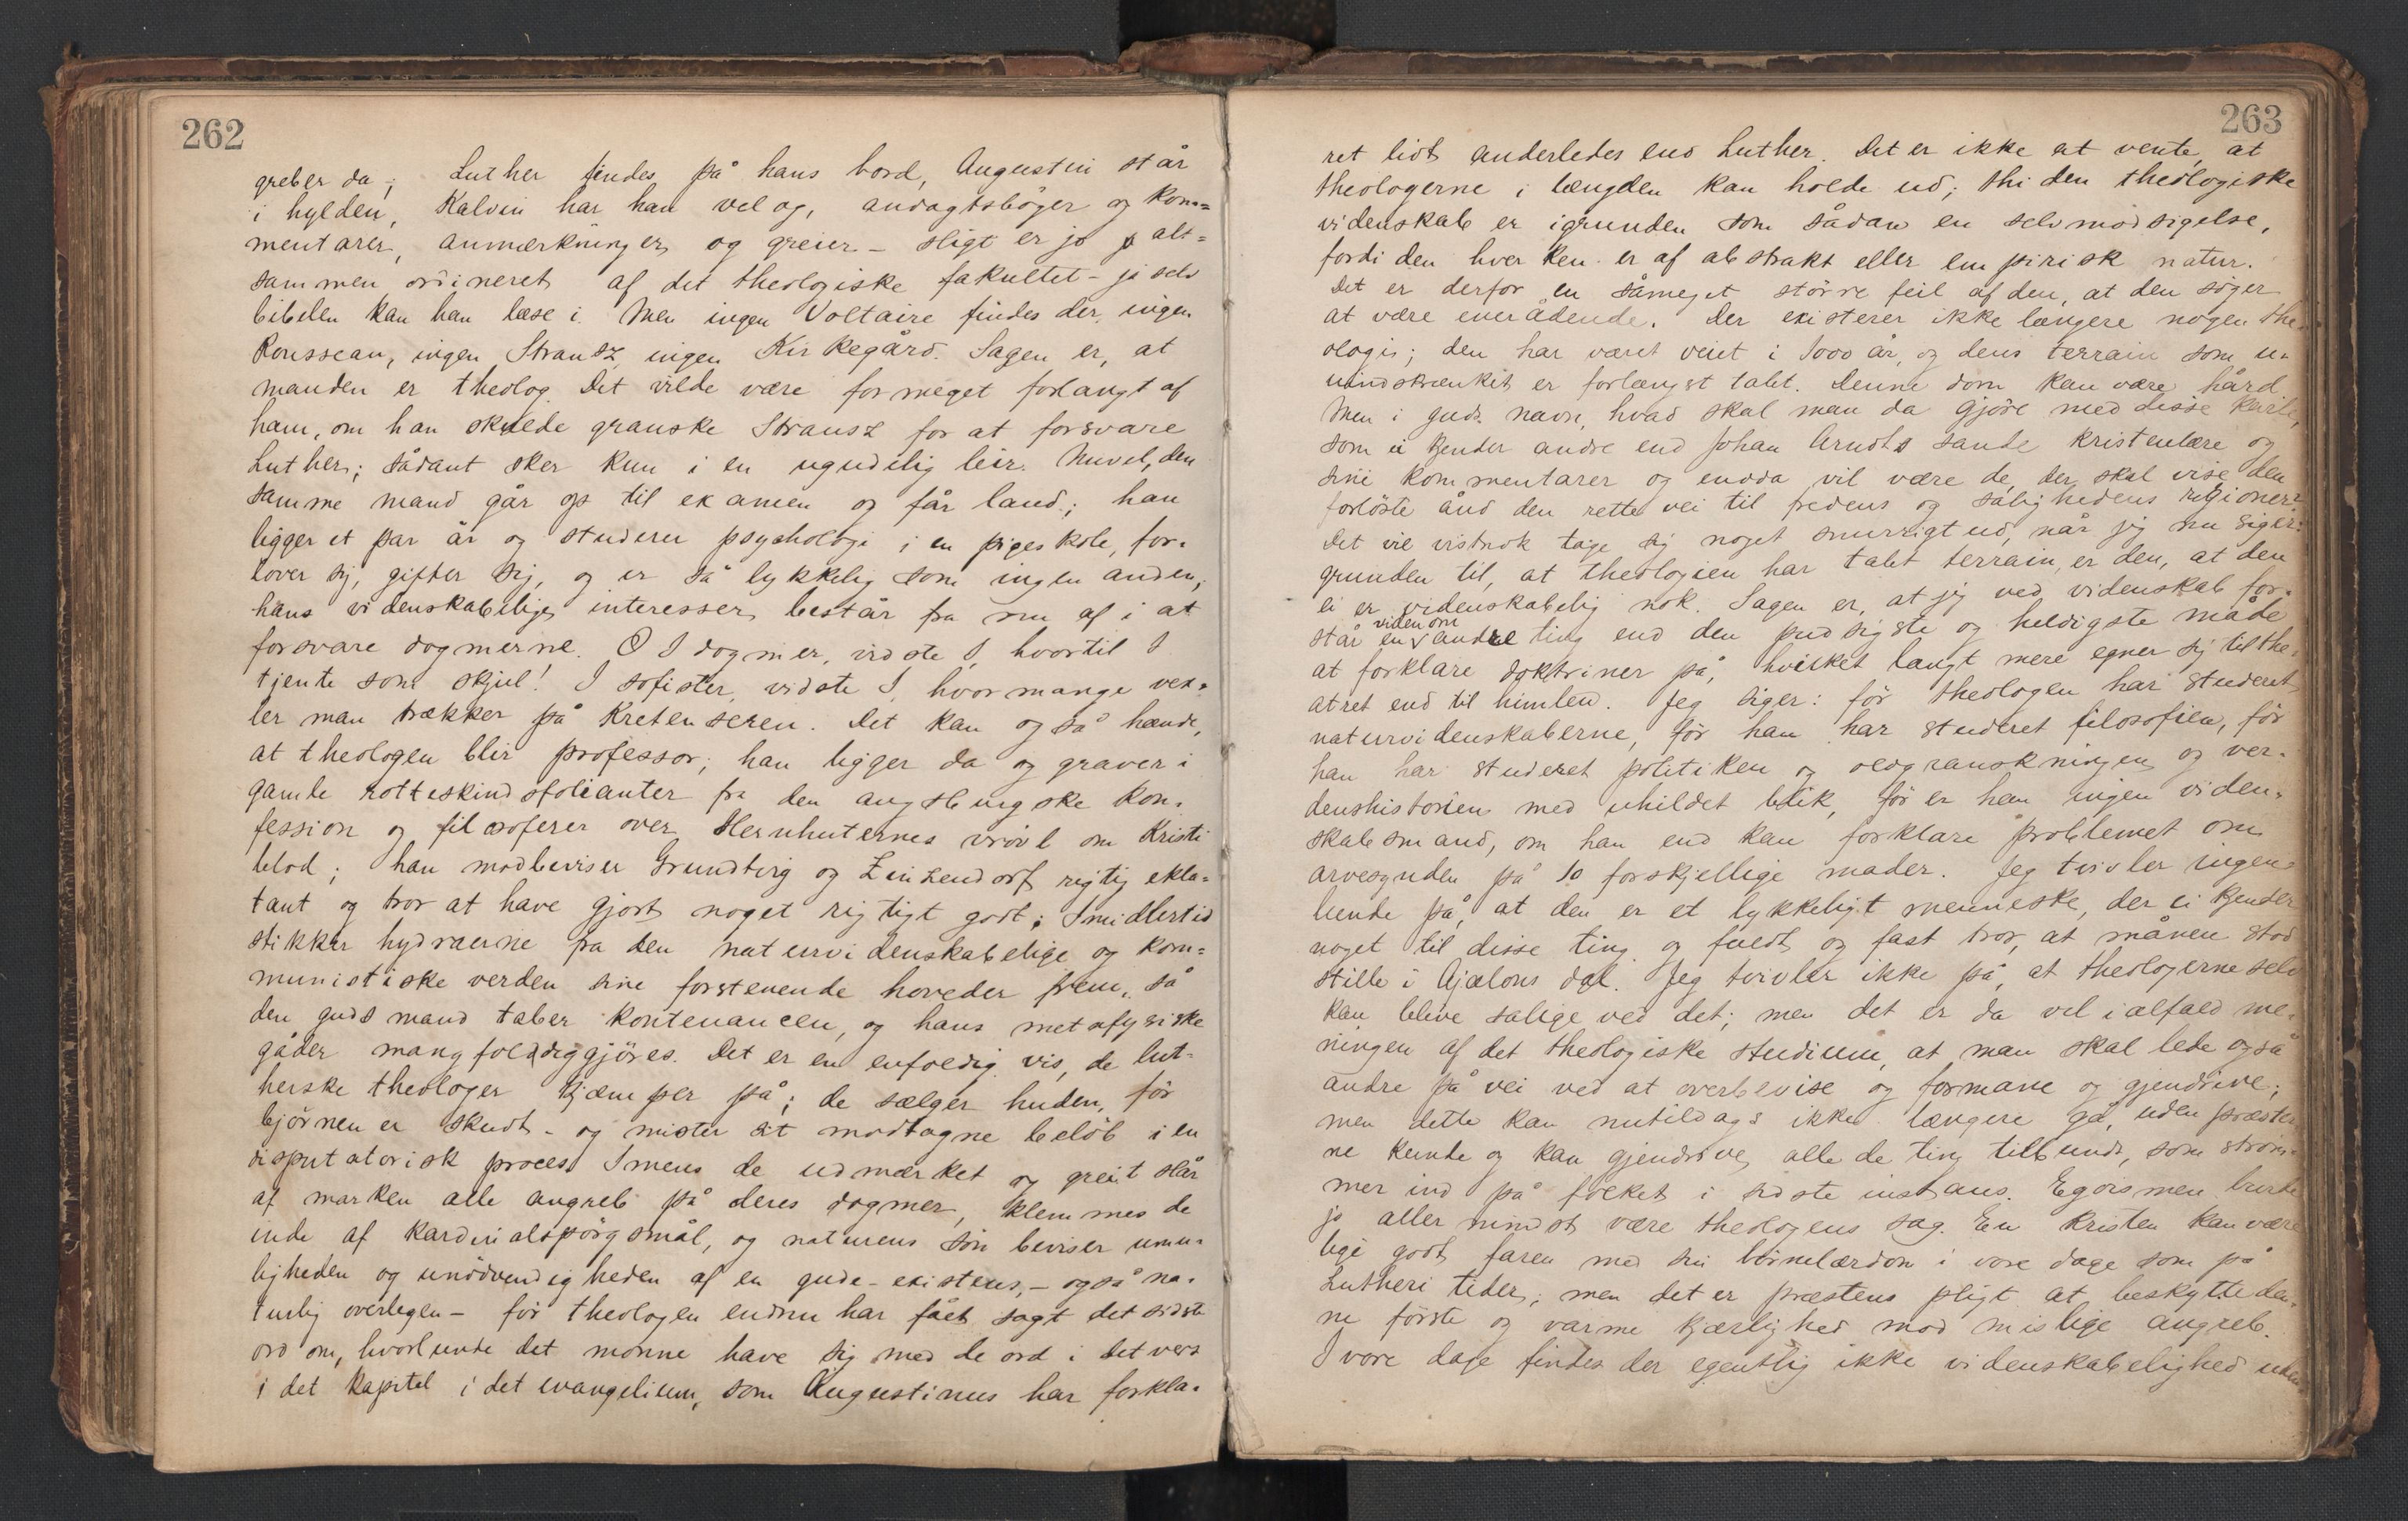 262
greber da; Luther findes på hans bord, Augustin står
i hylden, Kalvin har han vel og, andagtsbøger og kom=
mentarer, anmærkninger og greier – sligt er jo alt=
sammen ordineret af det theologiske fakultet – ja selv
bibelen kan han læse i. Men ingen Voltaire findes der, ingen
Rousseau, ingen Strausz, ingen Kirkegård. Sagen er, at
manden er theolog. Det vilde være formeget forlangt af
ham, om han skulde granske Strausz for at forsvare
Luther; sådant sker kun i en ugudelig leir. Nuvel, den
samme mand går op til examen og får laud.; han
ligger et par år og studerer psychologi i en pigeskole, for=
lover sig, gifter sig, og er så lykkelig som ingen anden;
hans videnskabelige interesser består fra nu af i at
forsvare dogmerne. O I dogmer, vidste I, hvortil I
tjente som skjul! I sofister, vidste I, hvor mange vex=
ler man trækker på Kretenseren. Det kan også hænde,
at theologen blir professor; han ligger da og graver i
gamle rotteskindsfolianter fra den augsburgske kon=
fession og filosoferer over Hernhuternes vrøvl om Kristi
blod; han modbeviser Grundtvig og Zinzendorf rigtig ekla=
tant og tror at have gjort noget rigtigt godt; Imidlertid
stikker hydraerne fra den naturvidenskabelige og kom=
munistiske verden sine forstenende hoveder frem, så
den guds mand taber kontenancen, og hans metafysiske
gåder mangfoldiggjøres. Det er en enfoldig vis, de lut=
herske theologer kjæmper på; de sælger huden, før
bjørnen er skudt – og mister sit modtagne beløb i en
disputatorisk proces. Imens de udmærket og greit slår
af marken alle angreb på deres dogmer, klemmes de
inde af kardinalspørgsmål, og naturens søn beviser umu=
ligheden og unødvendigheden af en guds-existens, – også na=
turlig overlegen – før theologen endnu har fået sagt det sidste
ord om, hvorlunde det monne have sig med de ord i det vers
i det kapitel i det evangelium, som Augustinus har forkla=
263
ret lidt anderledes end Luther. Det er ikke at vente, at
theologerne i længden kan holde ud; thi den theologiske
videnskab er igrunden som sådan en selvmodsigelse,
fordi den hverken er af abstrakt eller empirisk natur.
Det er derfor en såmeget større feil af den, at den søger
at være enerådende. Der existerer ikke længere nogen the=
ologi; den har været veiet i 1000 år, og dens terrain som u=
uindskrænket er forlængst tabt. Denne dom kan være hård.
Men i guds navn, hvad skal man da gjøre med disse karle,
som ei kjender andre end Johan Arndts sande kristenlære og
sine kommentarer og endda vil være de, der skal vise den
forløste ånd den rette vei til fredens og salighedens regioner?
Det vil vistnok tage sig noget snurrigt ud, når jeg nu siger:
grunden til, at theologien har tabt terrain, er den, at den
ei er videnskabelig nok. Sagen er, at jeg ved videnskab for=
viden om
står en andre ting end den pudsigste og heldigste måde
at forklare doktriner på, hvilket langt mere egner sig til the=
atret end til himlen. Jeg siger: før theologen har studeret
naturvidenskaberne, før han har studeret filosofien, før
han har studeret politiken og og ver=
denshistorien med uhildet blik, før er han ingen viden=
skabsmand, om han end kan forklare problemet om
arvesynden på 10 forskjellige måder. Jeg tvivler ingen=
lunde på, at den er et lykkeligt menneske, der ei kjender
noget til disse ting og fuldt og fast tror, at månen stod
stille i Ajalons dal. Jeg tvivler ikke på, at theologerne selv
kan blive salige ved det; men det er da vel ialfald me=
ningen af det theologiske studium, at man skal lede også
andre på vei ved at overbevise og formane og gjendrive;
men dette kan nutildags ikke længere gå, uden præster=
ne kunde og kan gjendrive alle de ting tilbunds, som strøm=
mer ind på folket i sidste instans. Egoismen burde
jo allermindst være theologens sag. En kristen kan være
lige godt faren med sin børnelærdom i vore dage som på
Lutheri tider; men det er præstens pligt at beskytte den=
ne første og varme kjærlighed mod mislige angreb.
I vore dage findes der egentlig ikke videnskabelighed uden=